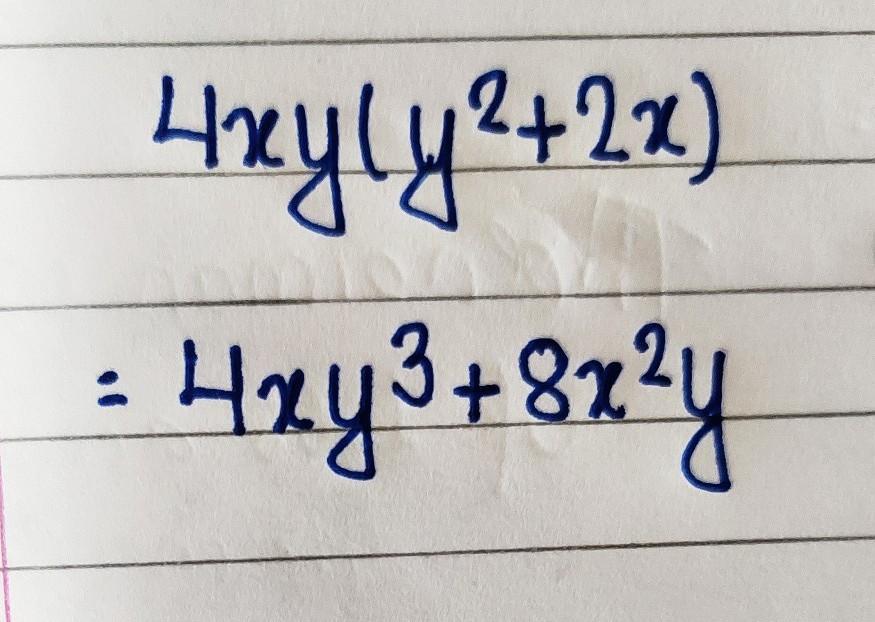 4xy(y²+2x)
= 4xy³+8x²y